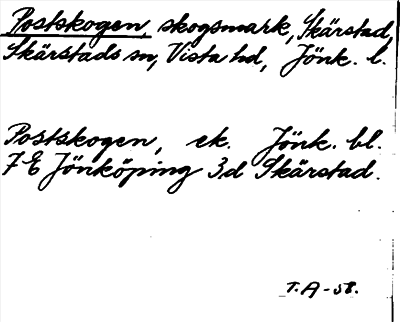 Postskogen, skogsmark, Skärstad,
Skärstads sn, Vista hd, Jönk. l.
Postskogen, ek. Jönk. bl.
7 E Jönköping 3d Skärstad.
T.A-58.